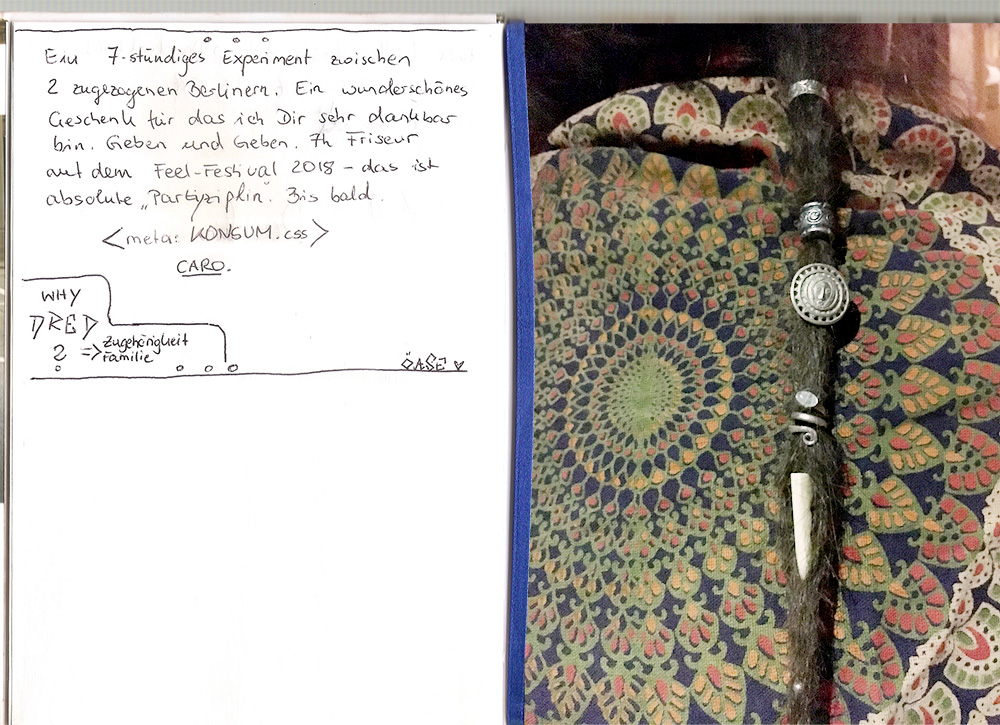 Ein 7-stündiges Experiment zwischen
2 zugezogenen Berlinern. Ein wunderschönes
Geschenk für das ich Dir sehr dankbar
bin. Geben und Geben. 7h Friseur
auf dem Feel-Festival 2018 – das ist
absolute „Partyzipkin". Bis bald.
<meta: KONSUM.css>
CARO.
WHY
DRED
2 => Zugehörigkeit
Familie
ÖASE